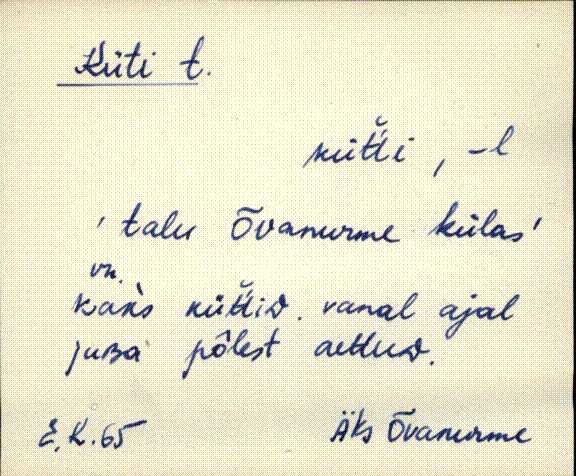 Küti t.
küt̆ti, -l
'talu Õvanurme külas'
vn.
kaks küt̆tiD. vanal ajal
juʙa põlest aetuD.
E.K.65 Äks Õvanurme